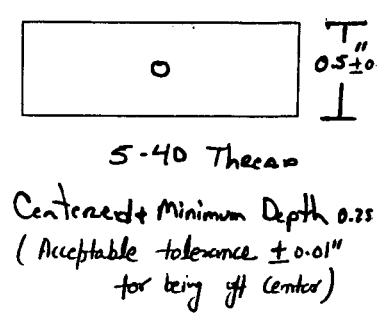 0.5±0
5-40 Thread
Centered & Minimum Depth 0.25
(Acceptable tolerance ±0.01"
for being off center)